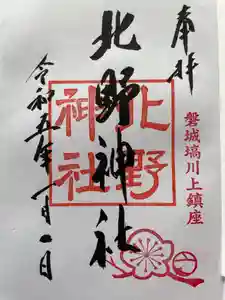 奉拝
磐城塙川上鎮座
北野神社
北野
神社
令和五年一月一日